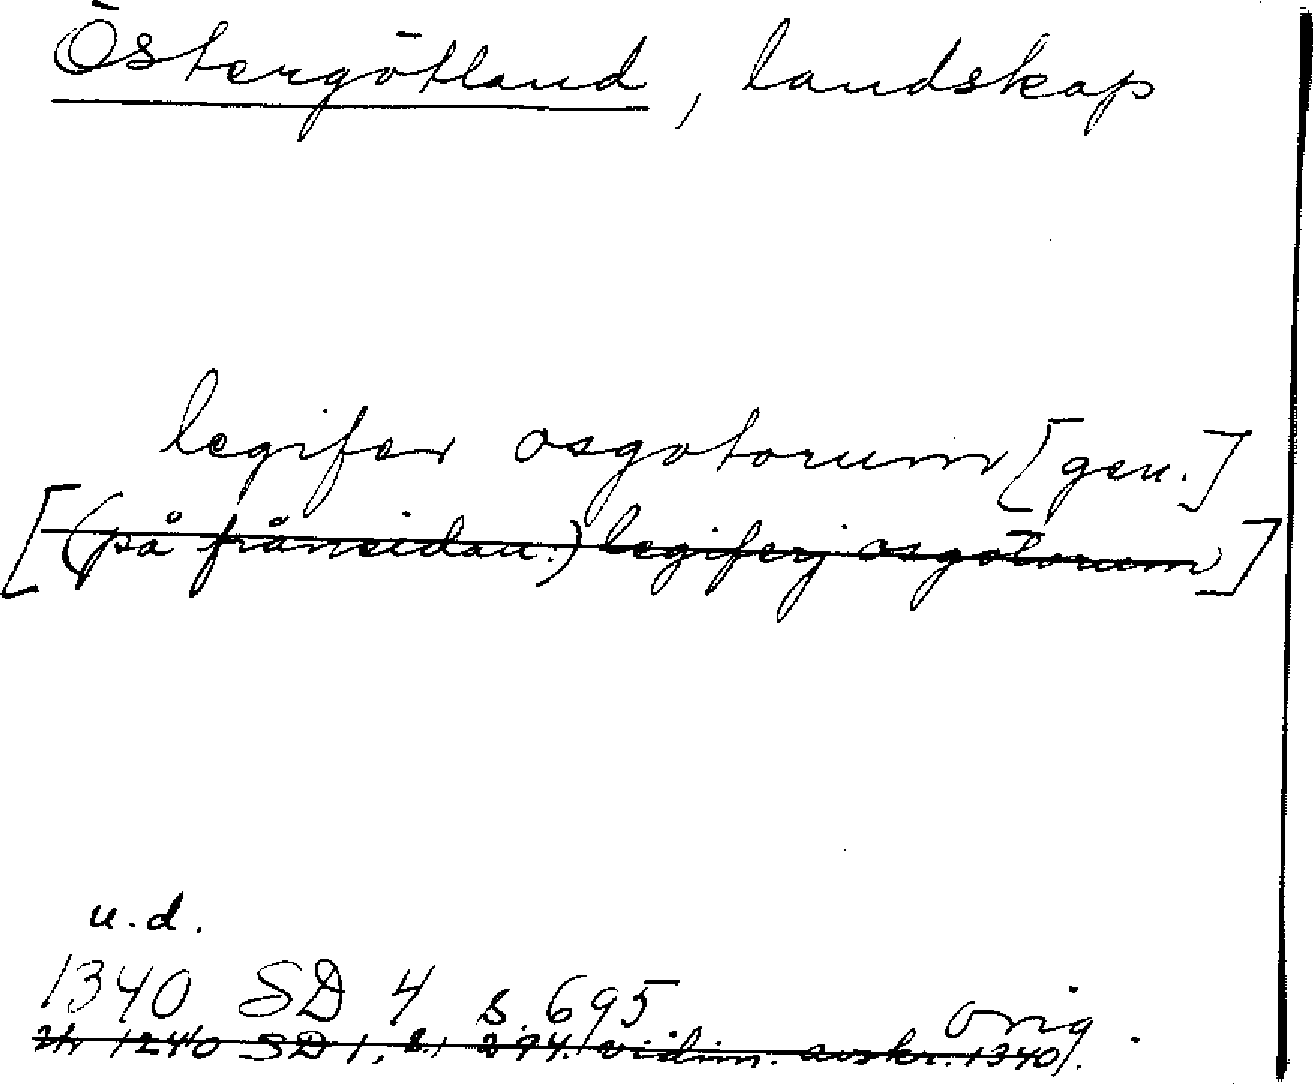 Östergötland, landskap
legifer osgotorum [gen.]
[(på frånsidan:) legiferj osgotorum]
u.d.
1340 SD 4 s. 695 orig.
1240 SD 1, s. 294 (vidim. avskr. 1340).